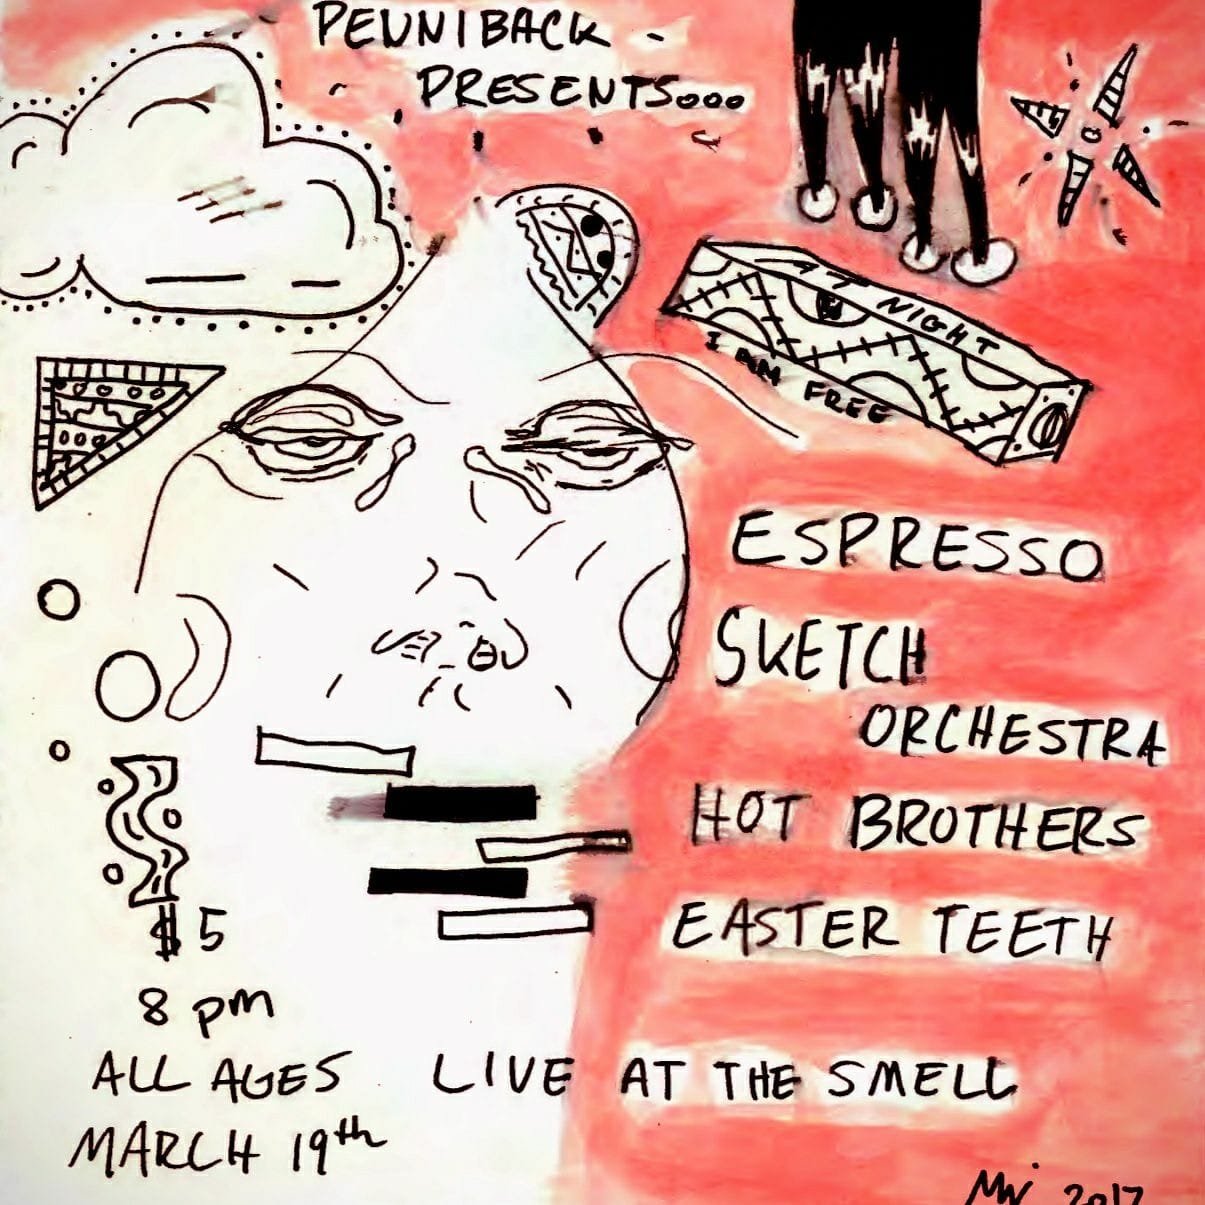 PEUNIBACK -
PRESENTS...
AT NIGHT
I AM FREE
ESPRESSO
SKETCH
ORCHESTRA
HOT BROTHERS
EASTER TEETH
$5
8 pm
ALL AGES LIVE AT THE SMELL
MARCH 19th
2017